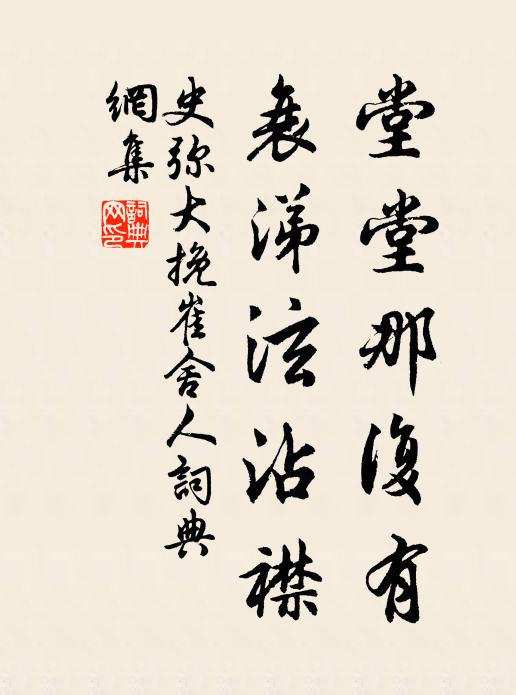 堂堂那復有
衰涕泫沾襟
史弥大挽崔舍人詞典
網集
詞典
网印